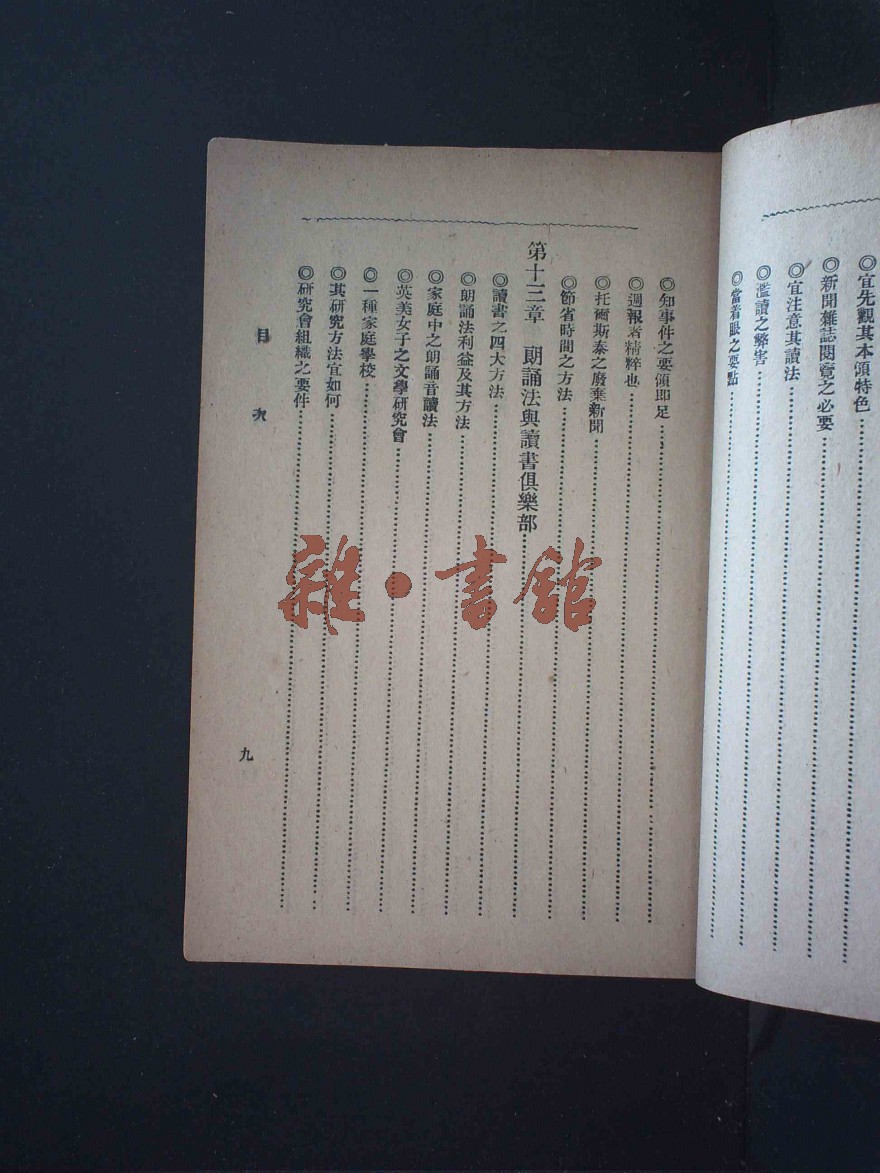 宜先觀其本領特色
◎新聞雜誌閱覽之必要
◎宜注意其讀法
◎濫讀之弊害
◎當着眼之要點
◎知事件之要領即足
◎週報者精粹也
◎托爾斯泰之廢棄新聞
◎節省時間之方法
第十三章 朗誦法與讀書俱樂部
◎讀書之四大方法
◎朗誦法利益及其方法
◎家庭中之朗誦音讀法
◎英美女子之文學研究會
◎一種家庭學校
◎其研究方法宜如何
◎研究會組織之要件
目次
九
雜·書館